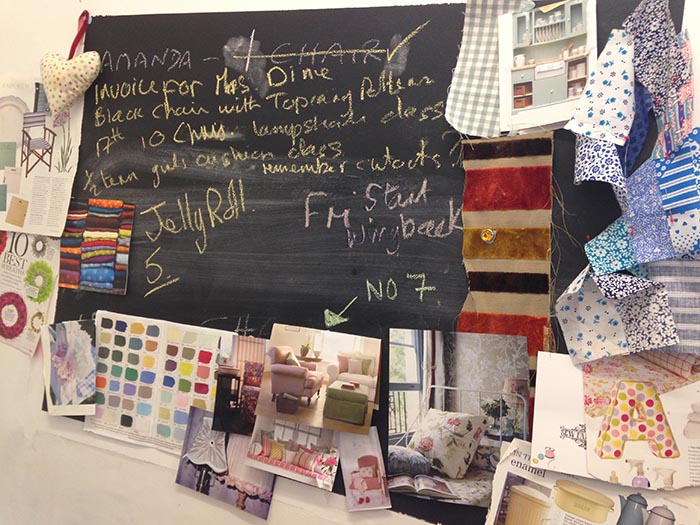 AMANDA - 1 CHAIR ✓
Invoice for Mrs. Dime
Black Chair with Topmay Pattern
17th 10 Chrs. lampshade class
1/2 term girls cushion class
remember cutouts?
Jelly Roll.
5.
Fri Start
Wingback
NO 7.
10
BEST
enamel
A